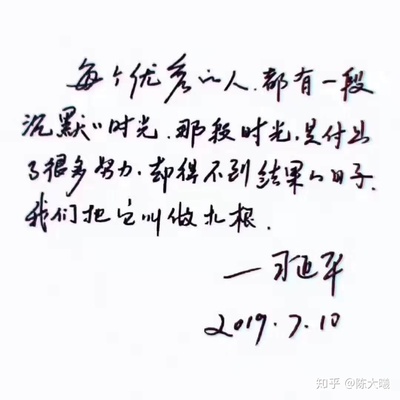 每个优秀的人,都有一段
沉默的时光.那段时光,是付出
了很多努力,却得不到结果的日子,
我们把它叫做扎根.
2019.7.10
知乎 @陈大曦